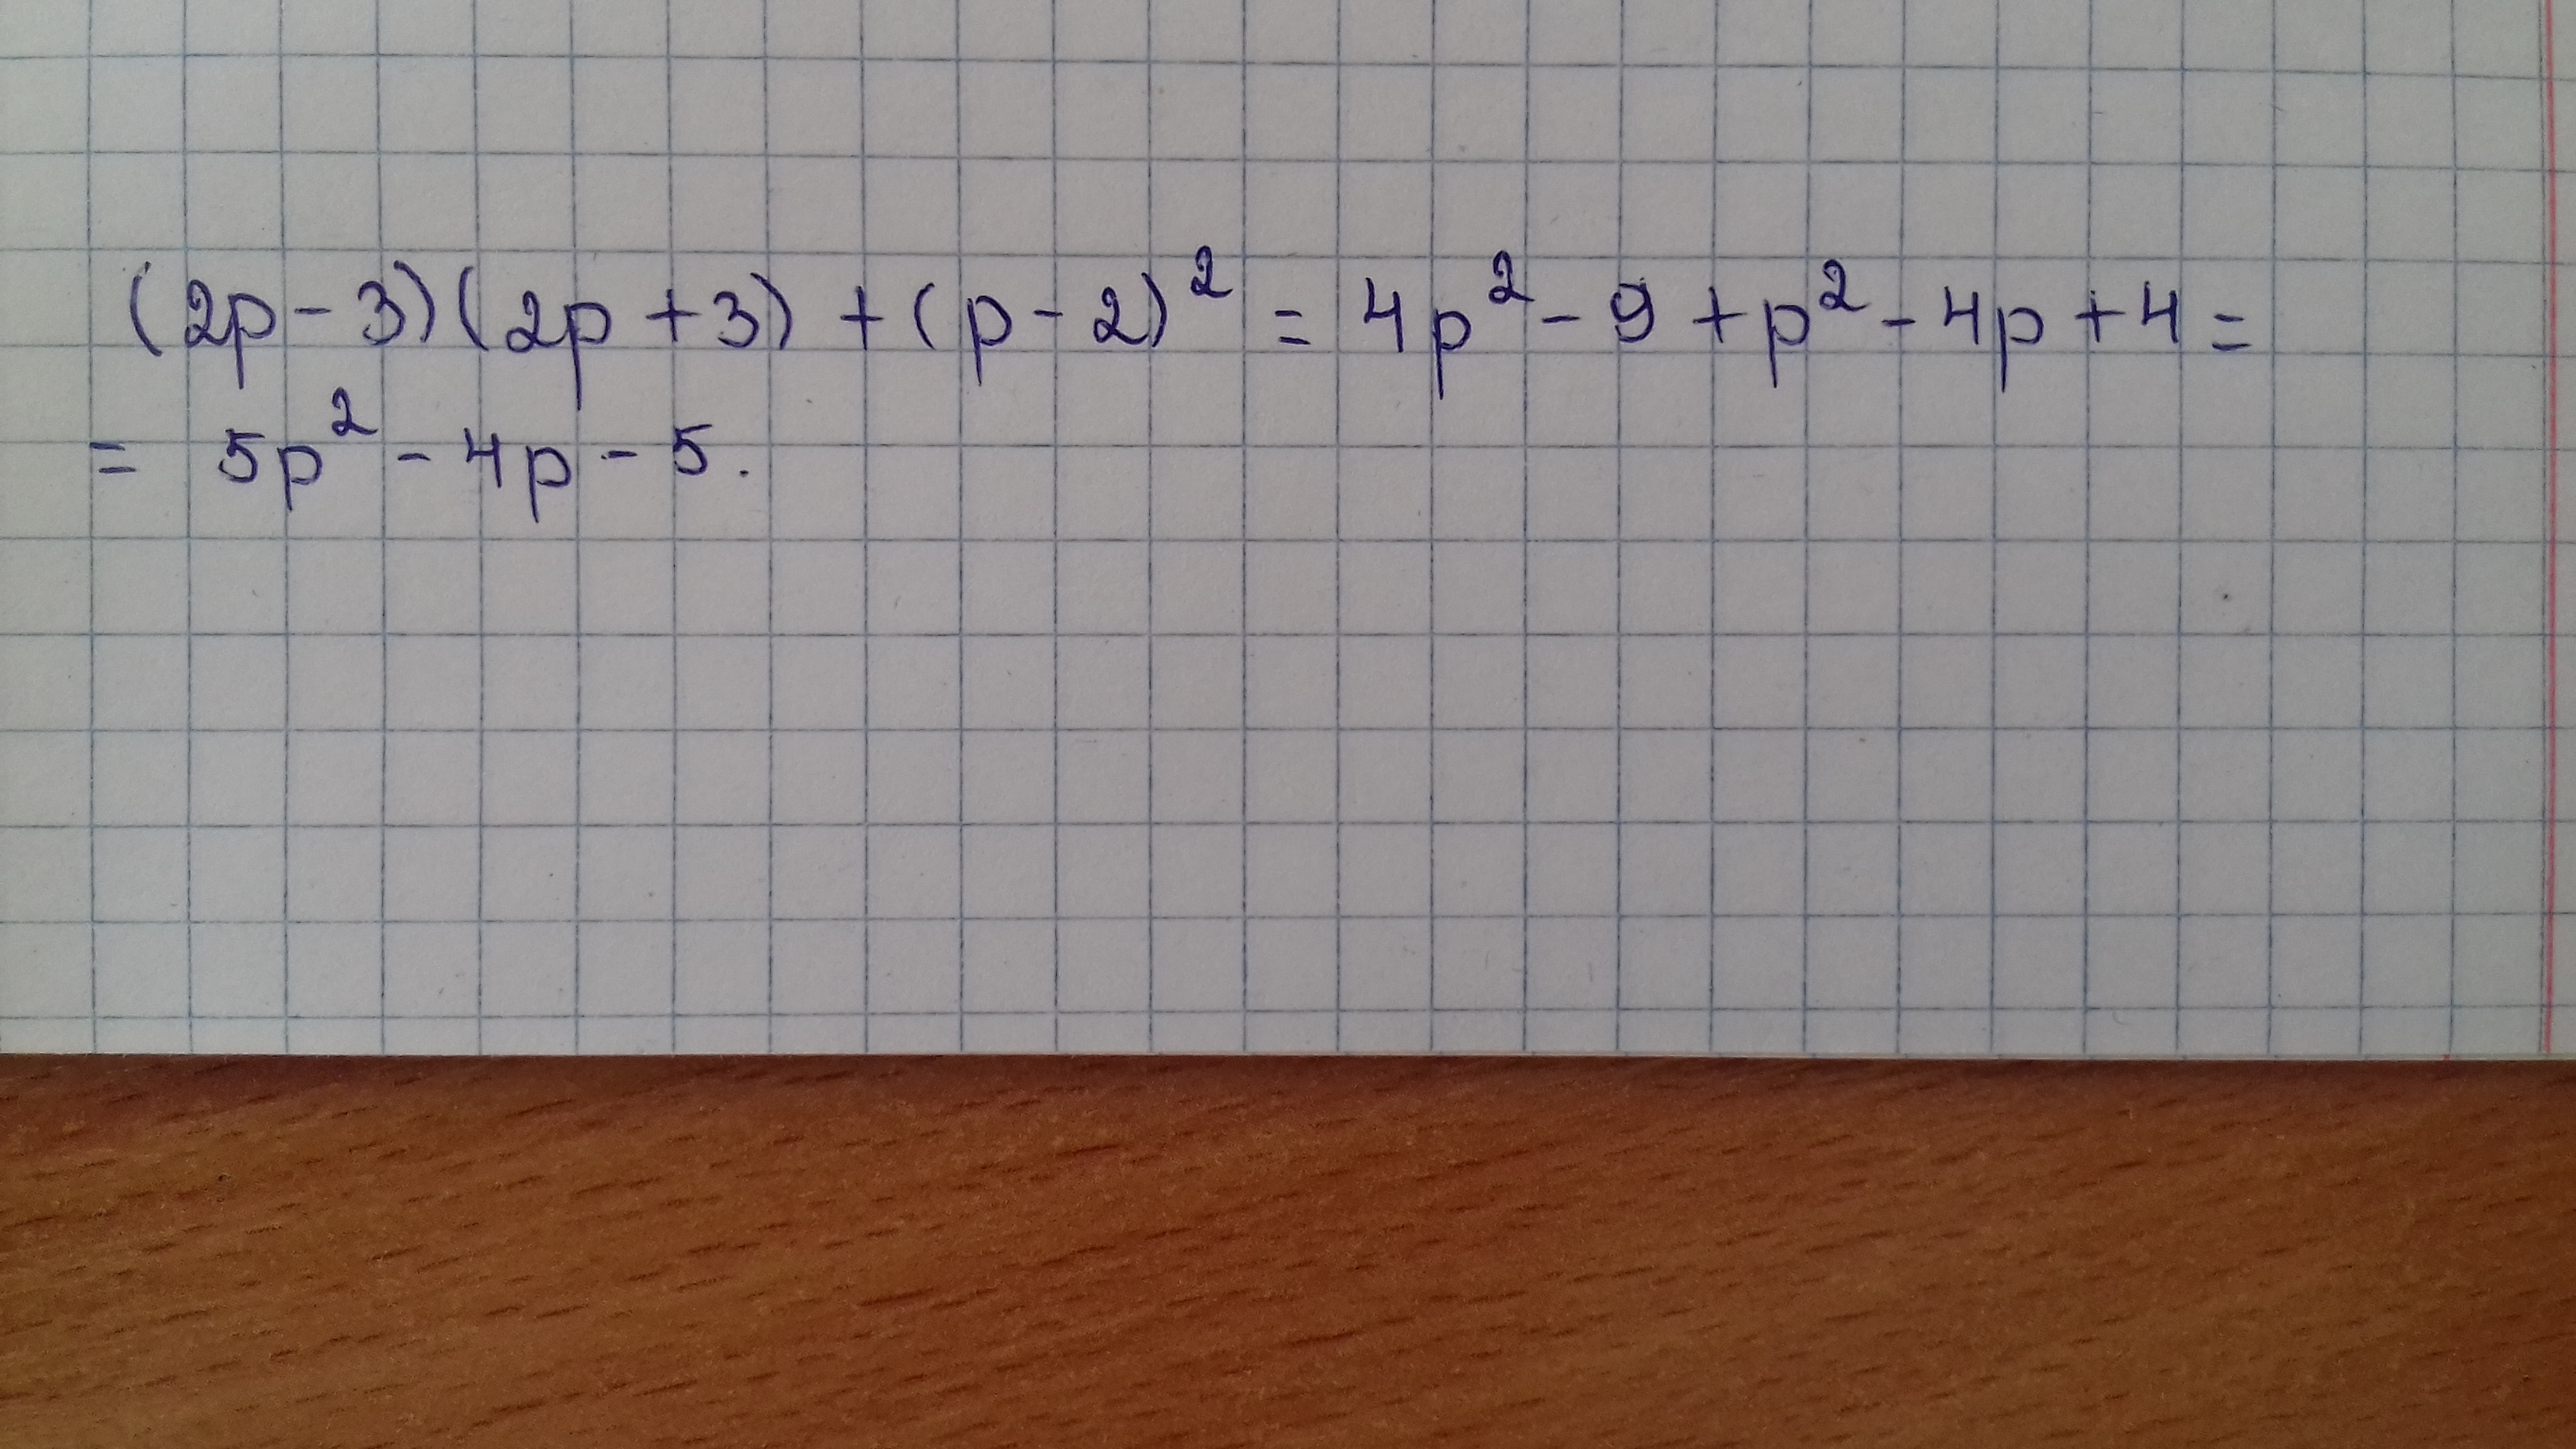 (2p - 3)(2p + 3) + (p - 2)² = 4p² - 9 + p² - 4p + 4 =
= 5p² - 4p - 5.